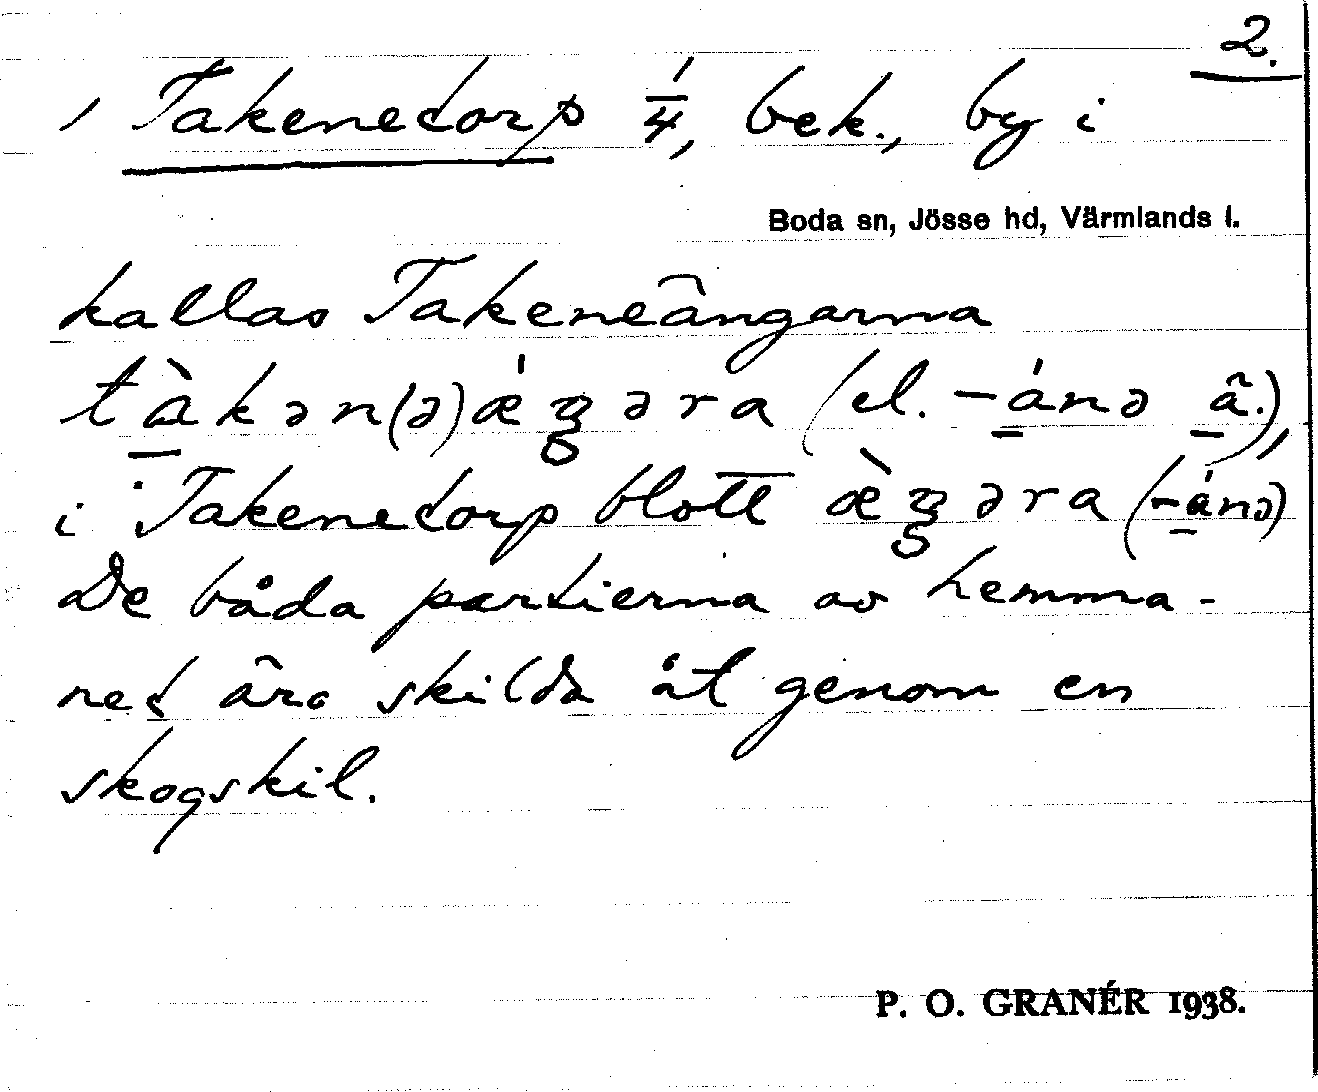 2.
/ Takenetorp 1/4, bek., by i
Boda sn, Jösse hd, Värmlands l.
kallas Takeneängarna
tàkən(ə)ǽŋəra (el. -ánə ã.),
i Takenetorp blott æ̀ŋəra (-ánə)
De båda partierna av hemma-
net äro skilda åt genom en
skogskil.
P. O. GRANÉR 1938.